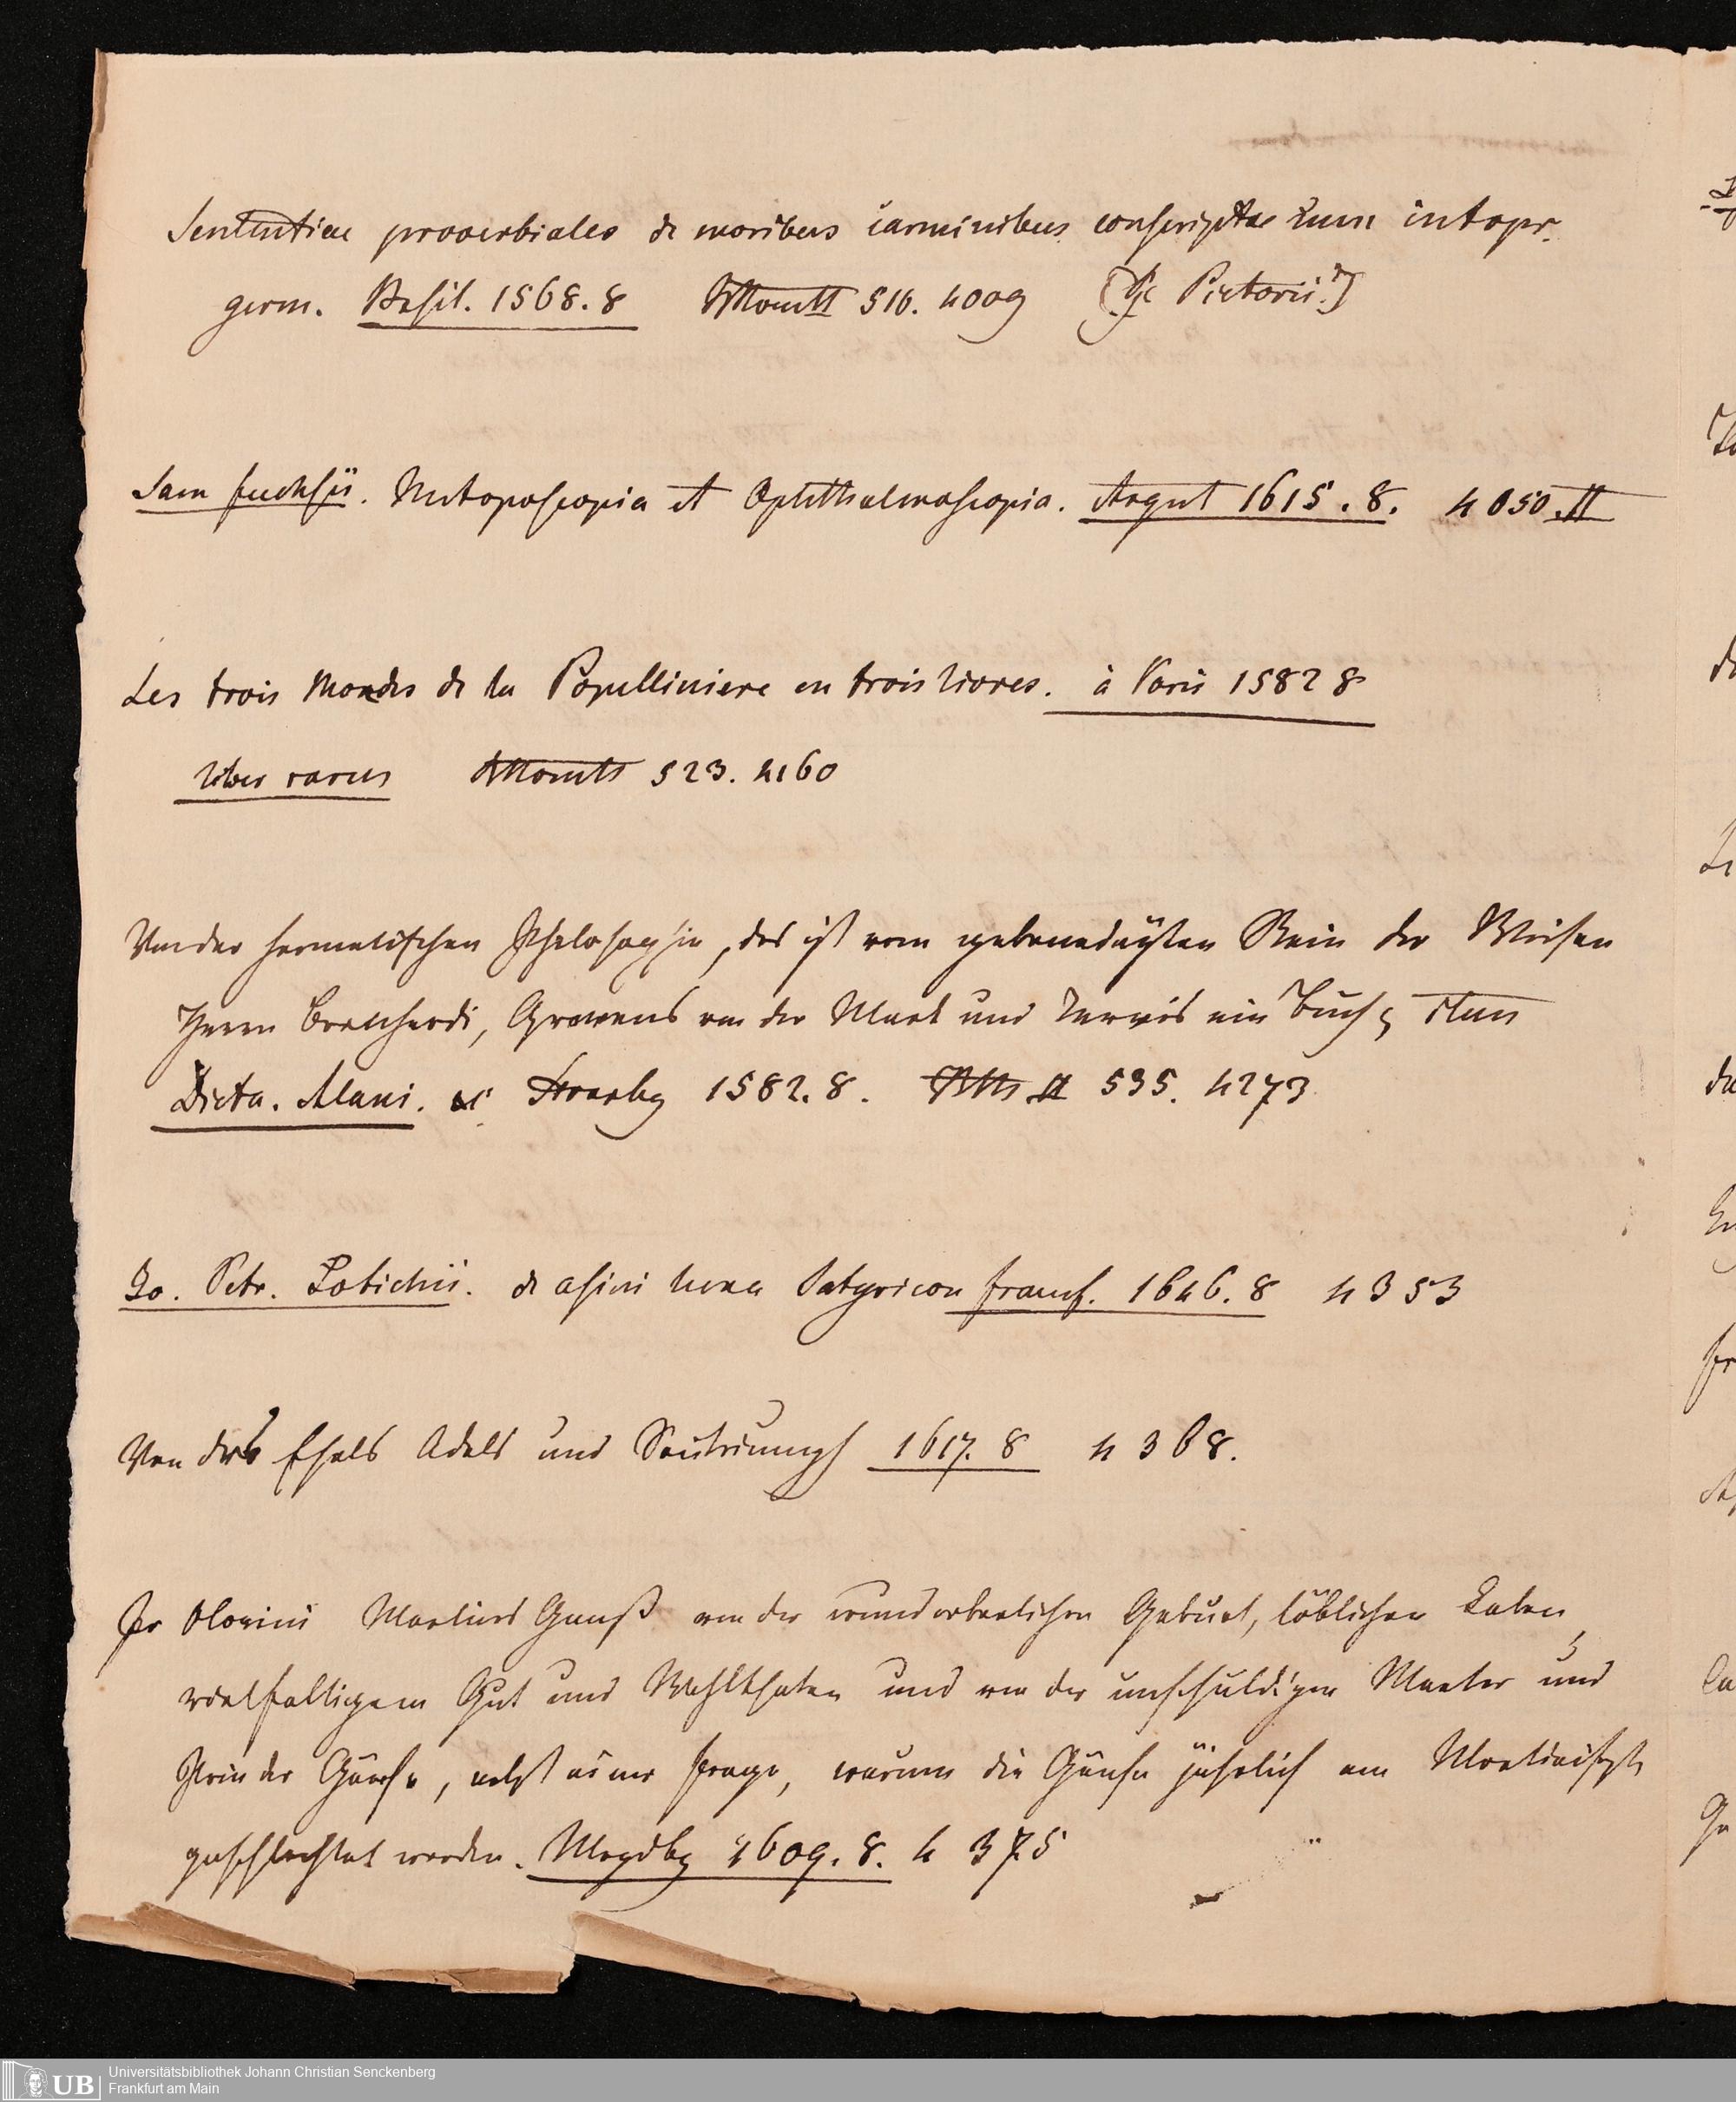 Sententiae proverbiales de moribus carminibus conscriptae cum interpr.
germ. Basil. 1568. 8 516. 4009 Pictorii?)
Sam Fuchsii. Metoposcopia et Ophthalmoscopia. Argent 1615. 8. 4050. II
Les trois Mondes de la Popelliniere en trois livres. à Paris 1582 8
liber rarus 523. 4160
Von der hermetischen Philosophia, das ist vom gebenedeyten Stein der Weisen
Herrn Bernhardi, Gravens von der Mark und Tervis ein Buch; Item
Dicta. Alani. Strasbg 1582. 8. II 535. 4273
Jo. Petr. Lotichii. de asini Satyricon Francf. 1646. 8 4353
Von des Esels Adels und 1617. 8 4368.
Jo Olorini Martins Ganß von der wunderbarlichen Geburt, löblichen Leben,
vielfaltigem Gut und Wohlthaten und von der unschuldigen Marter und
Pein der Gänse, nebst einer Frage, warum die Gänse jährlich am
geschlachtet werden. Magdbg 1609. 8. 4375
Universitätsbibliothek Johann Christian Senckenberg
Frankfurt am Main
UB